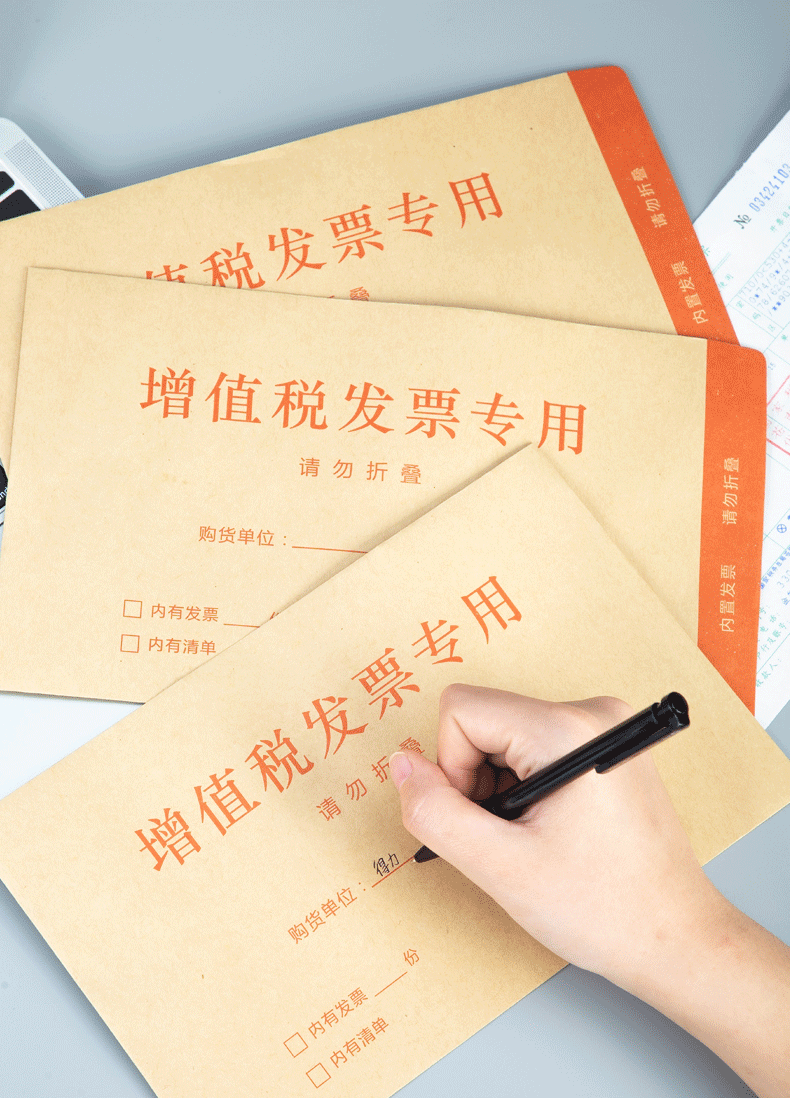 值税发票专用
请勿折叠
内置发票
№ 03424103
增值税发票专用
请勿折叠
购货单位：
内有发票
内有清单
请勿折叠
内置发票
增值税发票专用
请勿折叠
购货单位：得力
内有发票 份
内有清单